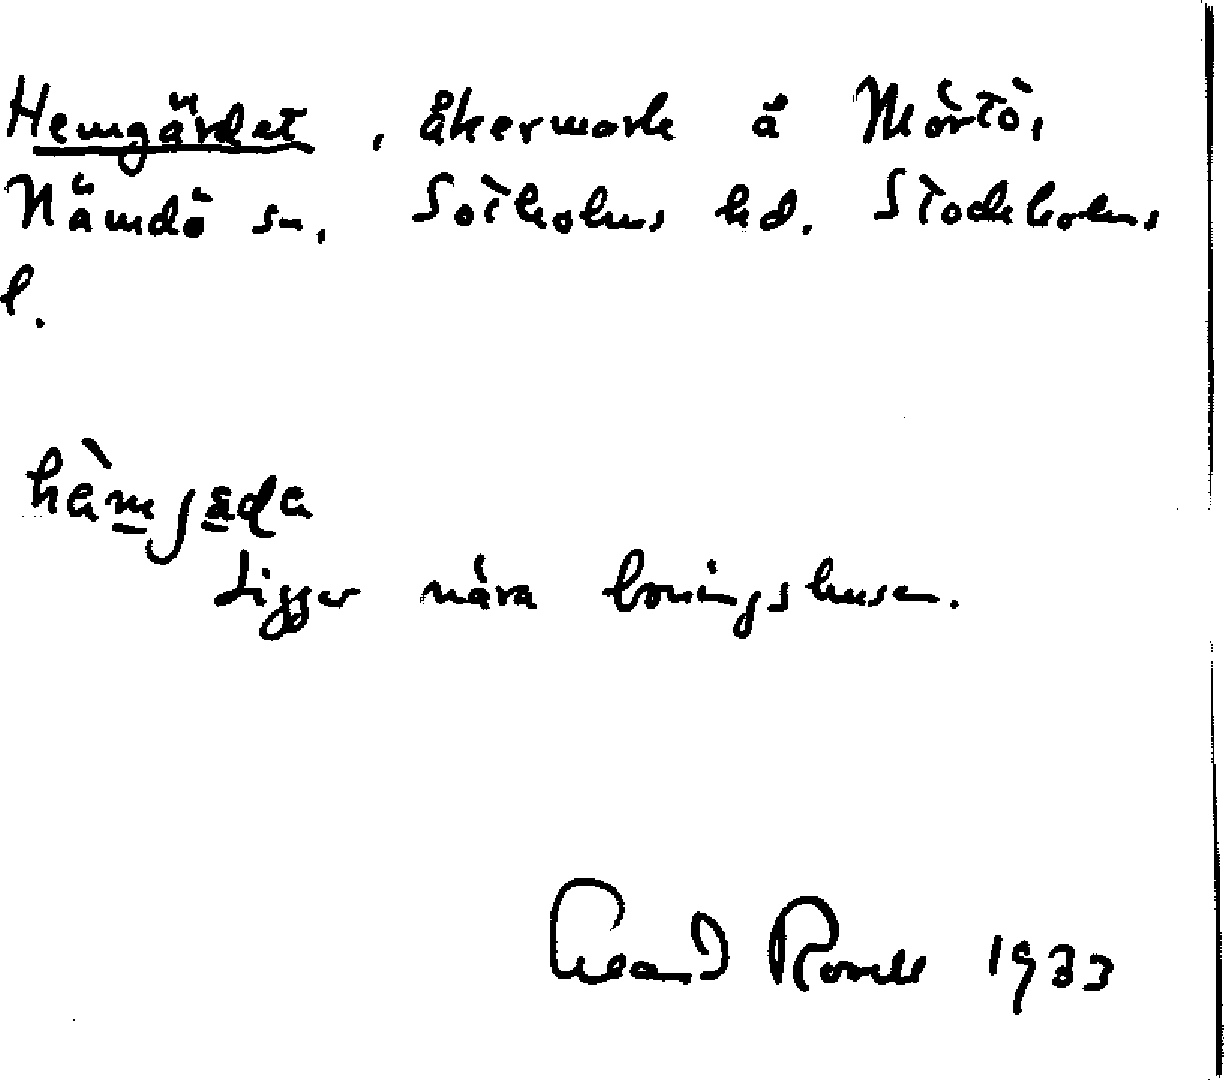 Hemgärdet, åkermark å Mörtö,
Nämdö sn, Sotholms hd. Stockholms
l.
Ligger nära boningshusen.
1933